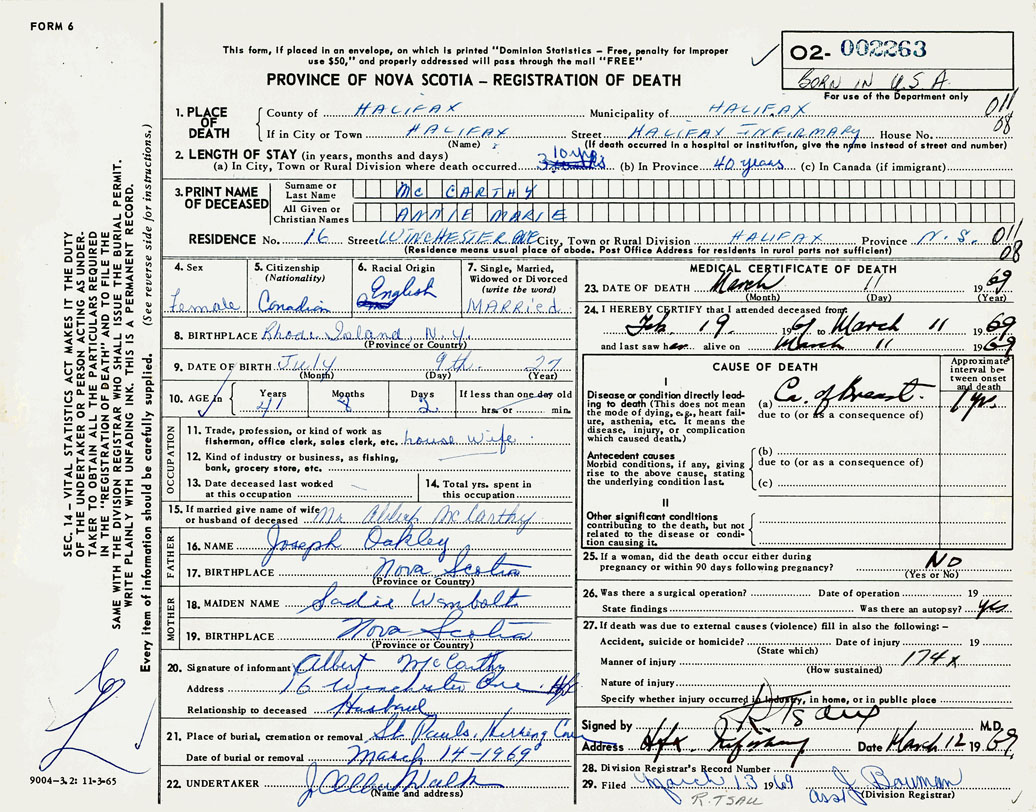 FORM 6
This form, if placed in an envelope, on which is printed "Dominion Statistics – Free, penalty for improper
use $50," and properly addressed will pass through the mail "FREE"
PROVINCE OF NOVA SCOTIA – REGISTRATION OF DEATH
O2- 002263
BORN IN U.S.A
For use of the Department only
011
08
1. PLACE OF DEATH
County of HALIFAX Municipality of HALIFAX
If in City or Town HALIFAX Street HALIFAX INFIRMARY House No.
(Name) (If death occurred in a hospital or institution, give the name instead of street and number)
2. LENGTH OF STAY (in years, months and days)
(a) In City, Town or Rural Division where death occurred 10 yrs (b) In Province 40 years (c) In Canada (if immigrant)
3. PRINT NAME OF DECEASED
Surname or Last Name MC CARTHY
All Given or Christian Names ANNIE MARIE
RESIDENCE No. 16 Street WINCHESTER AVE City, Town or Rural Division HALIFAX Province N.S.
(Residence means usual place of abode. Post Office Address for residents in rural parts not sufficient)
011
08
4. Sex
Female
5. Citizenship
(Nationality)
Canadian
6. Racial Origin
English
7. Single, Married,
Widowed or Divorced
(write the word)
MARRied
8. BIRTHPLACE Rhode Island, N.Y.
(Province or Country)
9. DATE OF BIRTH July 9th 27
(Month) (Day) (Year)
10. AGE in Years Months Days If less than one day old
41 8 2 hrs. or min.
OCCUPATION
11. Trade, profession, or kind of work as
fisherman, office clerk, sales clerk, etc. house wife
12. Kind of industry or business, as fishing,
bank, grocery store, etc.
13. Date deceased last worked
at this occupation
14. Total yrs. spent in
this occupation
15. If married give name of wife
or husband of deceased Mr McCarthy
FATHER
16. NAME Joseph Oakley
17. BIRTHPLACE Nova Scotia
(Province or Country)
MOTHER
18. MAIDEN NAME Sadie Wambolt
19. BIRTHPLACE Nova Scotia
(Province or Country)
20. Signature of informant Albert McCarthy
Address 16 Winchester Ave. Hfx
Relationship to deceased Husband
21. Place of burial, cremation or removal St. Pauls, Herring Cove
Date of burial or removal March 14-1969
22. UNDERTAKER J Allen Walk
(Name and address)
MEDICAL CERTIFICATE OF DEATH
23. DATE OF DEATH March 11 1969
(Month) (Day) (Year)
24. I HEREBY CERTIFY that I attended deceased from
Feb. 19 to March 11 1969
and last saw her alive on March 11 1969
CAUSE OF DEATH
Approximate
interval be-
tween onset
and death
I
Disease or condition directly lead-
ing to death (This does not mean
the mode of dying, e.g., heart fail-
ure, asthenia, etc. It means the
disease, injury, or complication
which caused death.)
(a) Ca. of Breast. 1 yr
due to (or as a consequence of)
Antecedent causes
Morbid conditions, if any, giving
rise to the above cause, stating
the underlying condition last.
(b)
due to (or as a consequence of)
(c)
II
Other significant conditions
contributing to the death, but not
related to the disease or condi-
tion causing it.
25. If a woman, did the death occur either during
pregnancy or within 90 days following pregnancy? NO
(Yes or No)
26. Was there a surgical operation? Date of operation 19
State findings Was there an autopsy? yes
27. If death was due to external causes (violence) fill in also the following: –
Accident, suicide or homicide? Date of injury 19
(State which)
Manner of injury 174x
(How sustained)
Nature of injury
Specify whether injury occurred in Industry, in home, or in public place
Signed by M.D.
Address Hfx. Infirmary Date March 12 1969.
28. Division Registrar's Record Number
29. Filed March 13 1969 J. Bowman
(Division Registrar)
R. TSALL Ass't
SEC. 14 – VITAL STATISTICS ACT MAKES IT THE DUTY
OF THE UNDERTAKER OR PERSON ACTING AS UNDER-
TAKER TO OBTAIN ALL THE PARTICULARS REQUIRED
IN THE "REGISTRATION OF DEATH" AND TO FILE THE
SAME WITH THE DIVISION REGISTRAR WHO SHALL ISSUE THE BURIAL PERMIT.
WRITE PLAINLY WITH UNFADING INK. THIS IS A PERMANENT RECORD.
Every item of information should be carefully supplied. (See reverse side for instructions.)
9004-3.2: 11-3-65